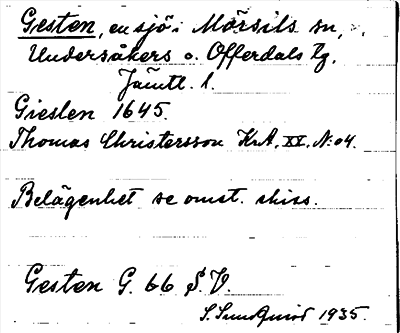 Gesten, en sjö i Mörsils sn,
Undersåkers o. Offerdals tg.
Jämtl. l.
Gieslen 1645.
Thomas Christersson Kr.A. XX. N:o 4.
Belägenhet se omst. skiss.
Gesten G. 66 S.V.
S. Sundquist 1935.